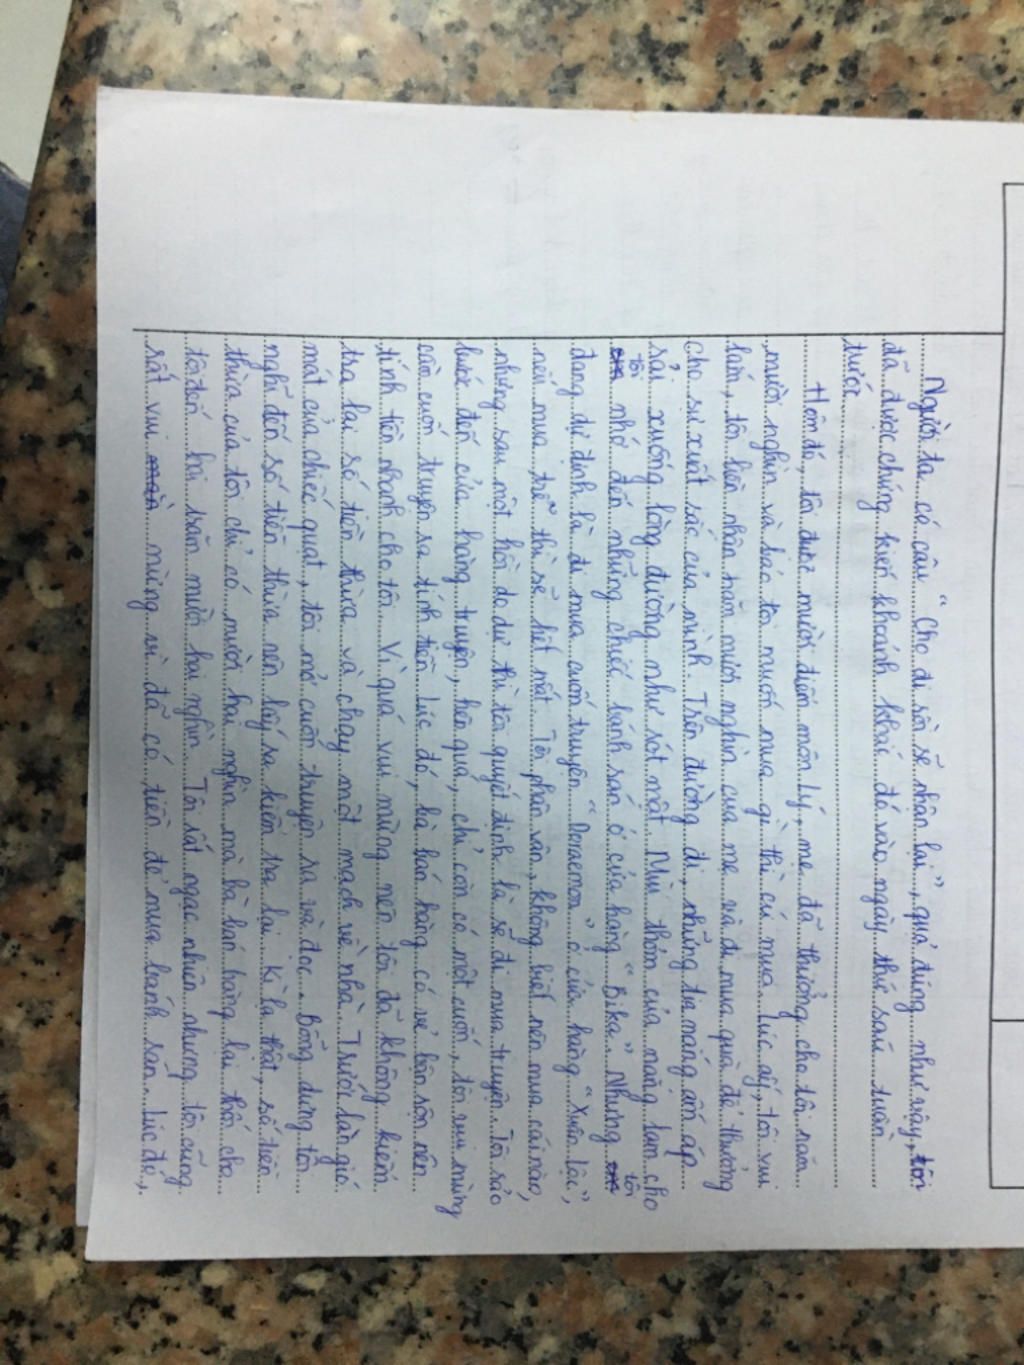 Người ta có câu "Cho đi rồi sẽ nhận lại", quả đúng như vậy, tôi
đã được chứng kiến khoảnh khắc đó vào ngày thứ sáu tuần
trước
Hôm đó, tôi được mười điểm môn Lý, mẹ đã thưởng cho tôi năm
mươi nghìn và bảo tôi muốn mua gì thì cứ mua. Lúc ấy, tôi vui
lắm, tôi liền nhận năm mươi nghìn của mẹ và đi mua quà để thưởng
cho sự xuất sắc của mình. Trên đường đi, những tia nắng ấm áp
rải xuống lòng đường như rót mật. Mùi thơm của nắng làm cho
tôi nhớ đến những chiếc bánh rán ở cửa hàng "Bika". Nhưng tôi
đang dự định là đi mua cuốn truyện "Doraemon" ở cửa hàng "Xuân Lộc",
nếu mua trễ thì sẽ hết mất. Tôi phân vân, không biết nên mua cái nào,
nhưng sau một hồi do dự thì tôi quyết định là sẽ đi mua truyện. Tôi rảo
bước đến cửa hàng truyện, hên quá, chỉ còn có một cuốn, tôi vui mừng
cầm cuốn truyện ra tính tiền. Lúc đó, bà bán hàng có vẻ bận rộn nên
tính tiền nhanh cho tôi. Vì quá vui mừng nên tôi đã không kiểm
tra lại số tiền thừa và chạy một mạch về nhà. Trước làn gió
mát của chiếc quạt, tôi mở cuốn truyện ra và đọc. Bỗng dưng tôi
nghĩ đến số tiền thừa nên lấy ra kiểm tra lại. Kì lạ thật, số tiền
thừa của tôi chỉ có mười hai nghìn mà bà bán hàng lại thối cho
tôi đến hai trăm mười hai nghìn. Tôi rất ngạc nhiên nhưng tôi cũng
rất vui mừng vì đã có tiền để mua bánh rán. Lúc đó,